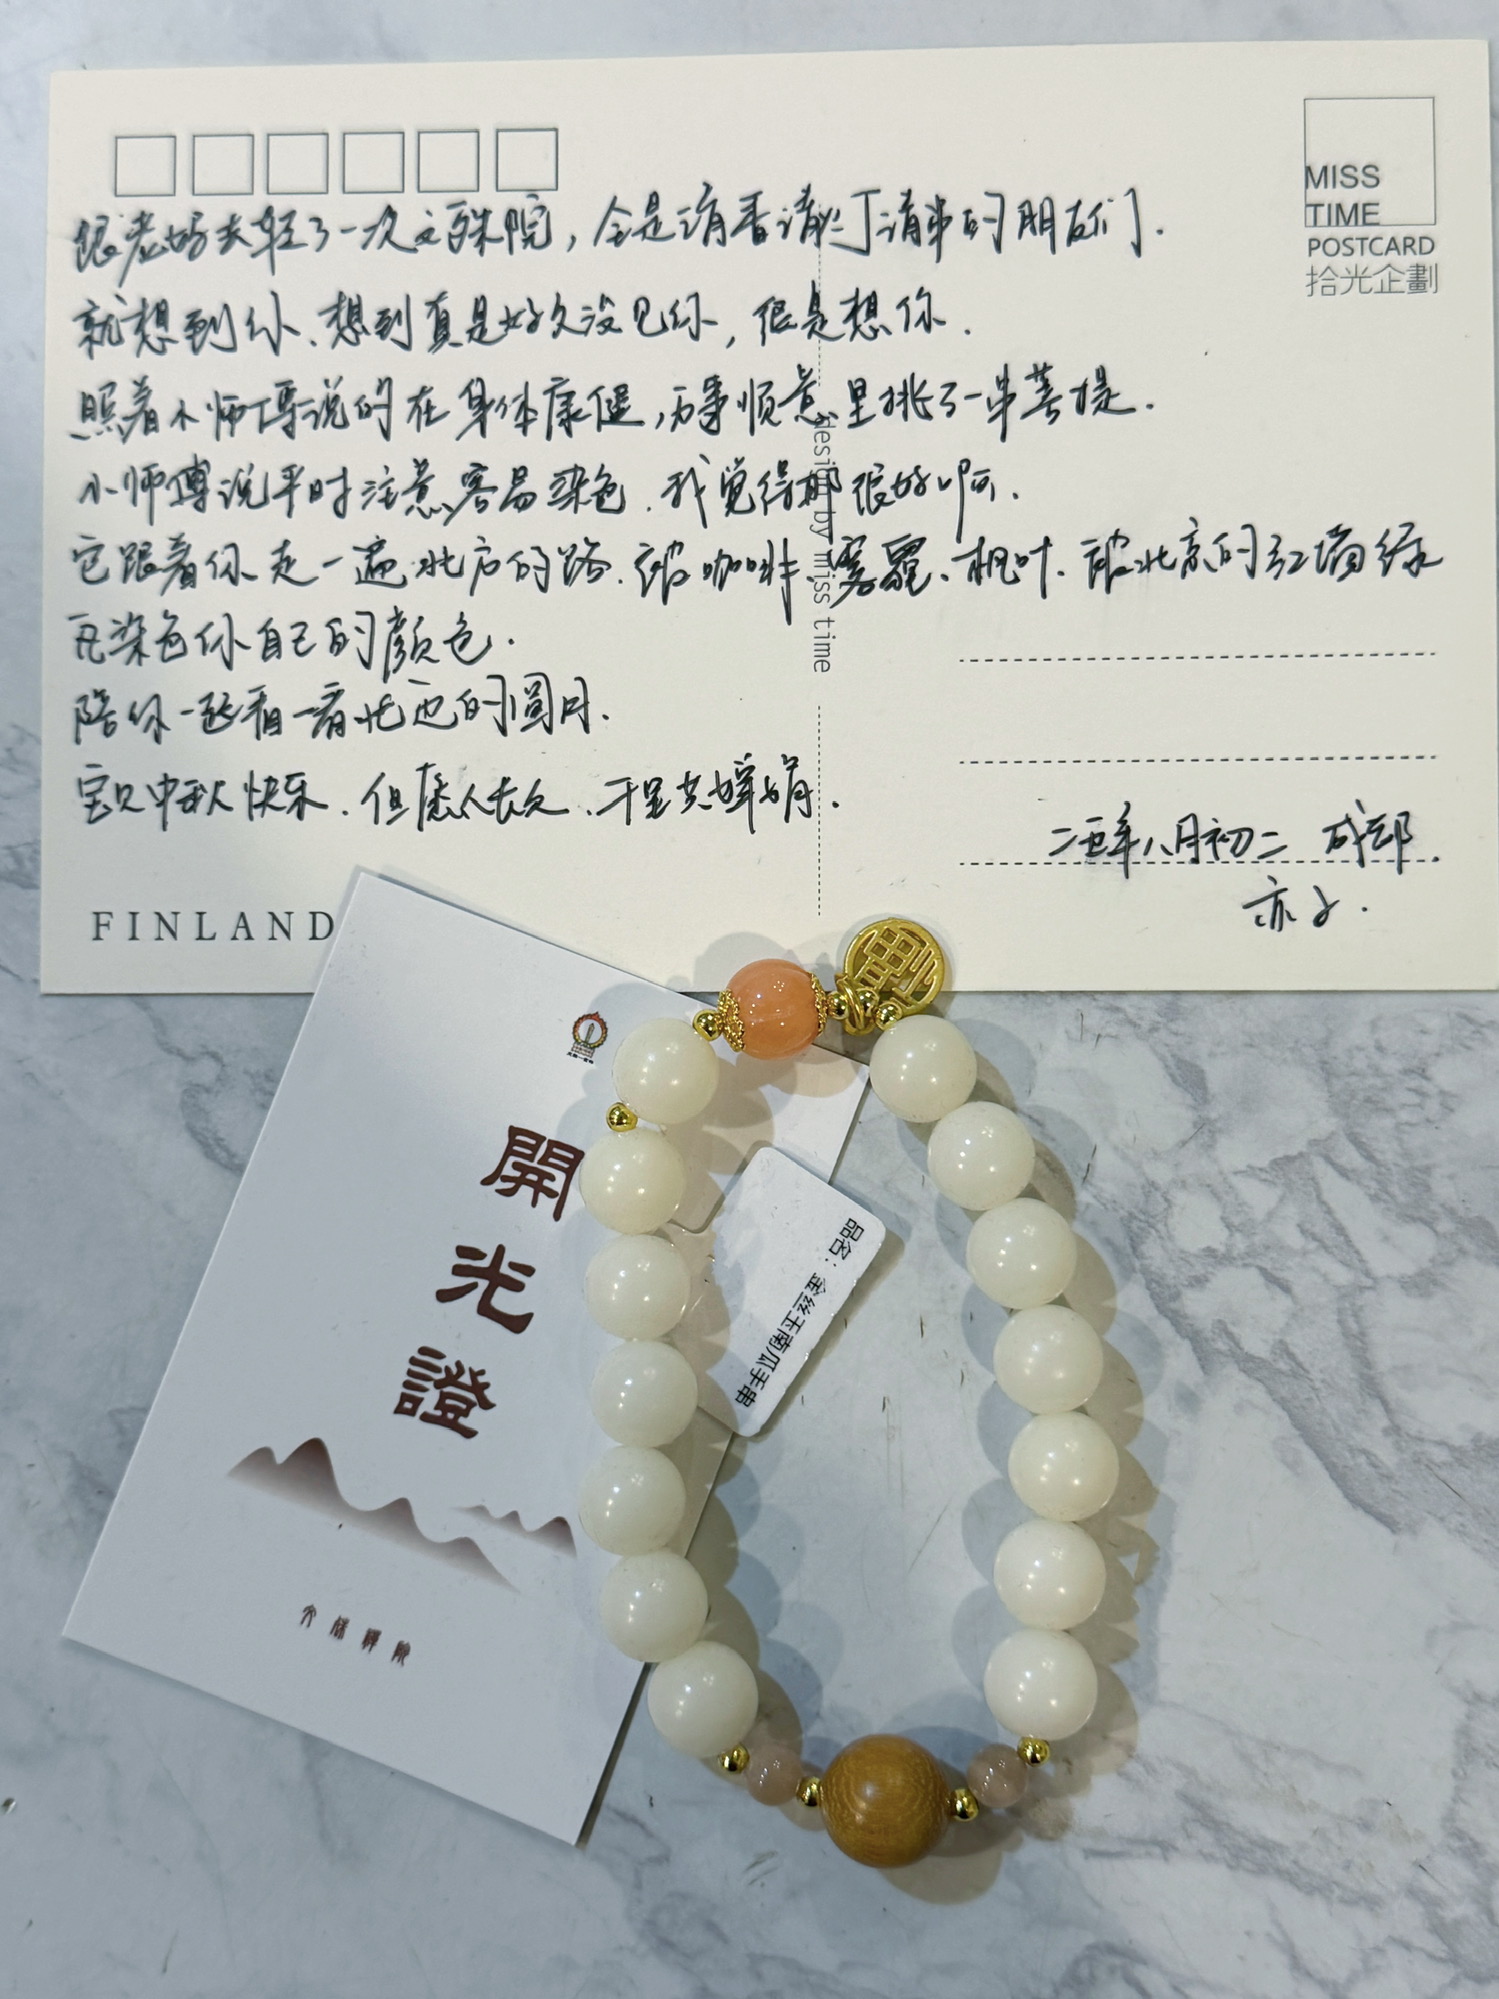 跟老好去轻了一次文殊院，全是请香请灯请串的朋友们.
就想到你、想到真是好久没见你，很是想你.
照着小师傅说的在身体康健，万事顺意里挑了一串菩提.
小师傅说平时注意容易染色.我觉得那很好啊.
它跟着你走一遍北京的路.被咖啡、雾霾、枫叶、被北京的红墙绿
瓦染色你自己的颜色.
陪你一起看一看北边的圆月.
宝贝中秋快乐.但愿人长久.千里共婵娟.
二五年八月初二 成都.
亦子.
MISS
TIME
POSTCARD
拾光企劃
design by miss time
FINLAND
開光證
文殊禪院
品名：金丝玉南瓜手串